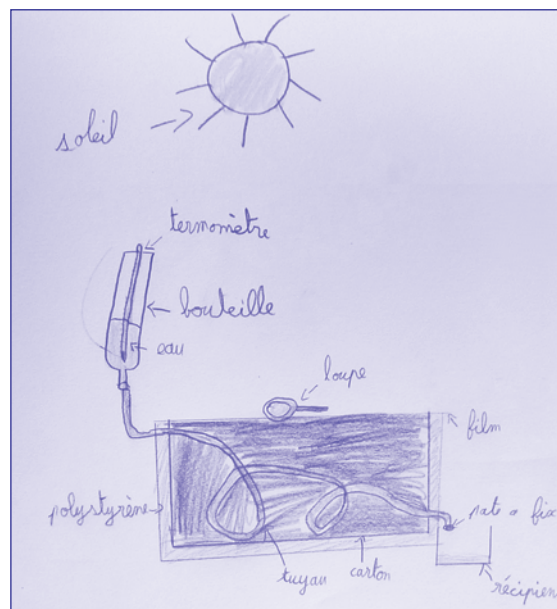 soleil
termomètre
bouteille
eau
loupe
film
polystyrène
pate a fix
tuyau
carton
récipien